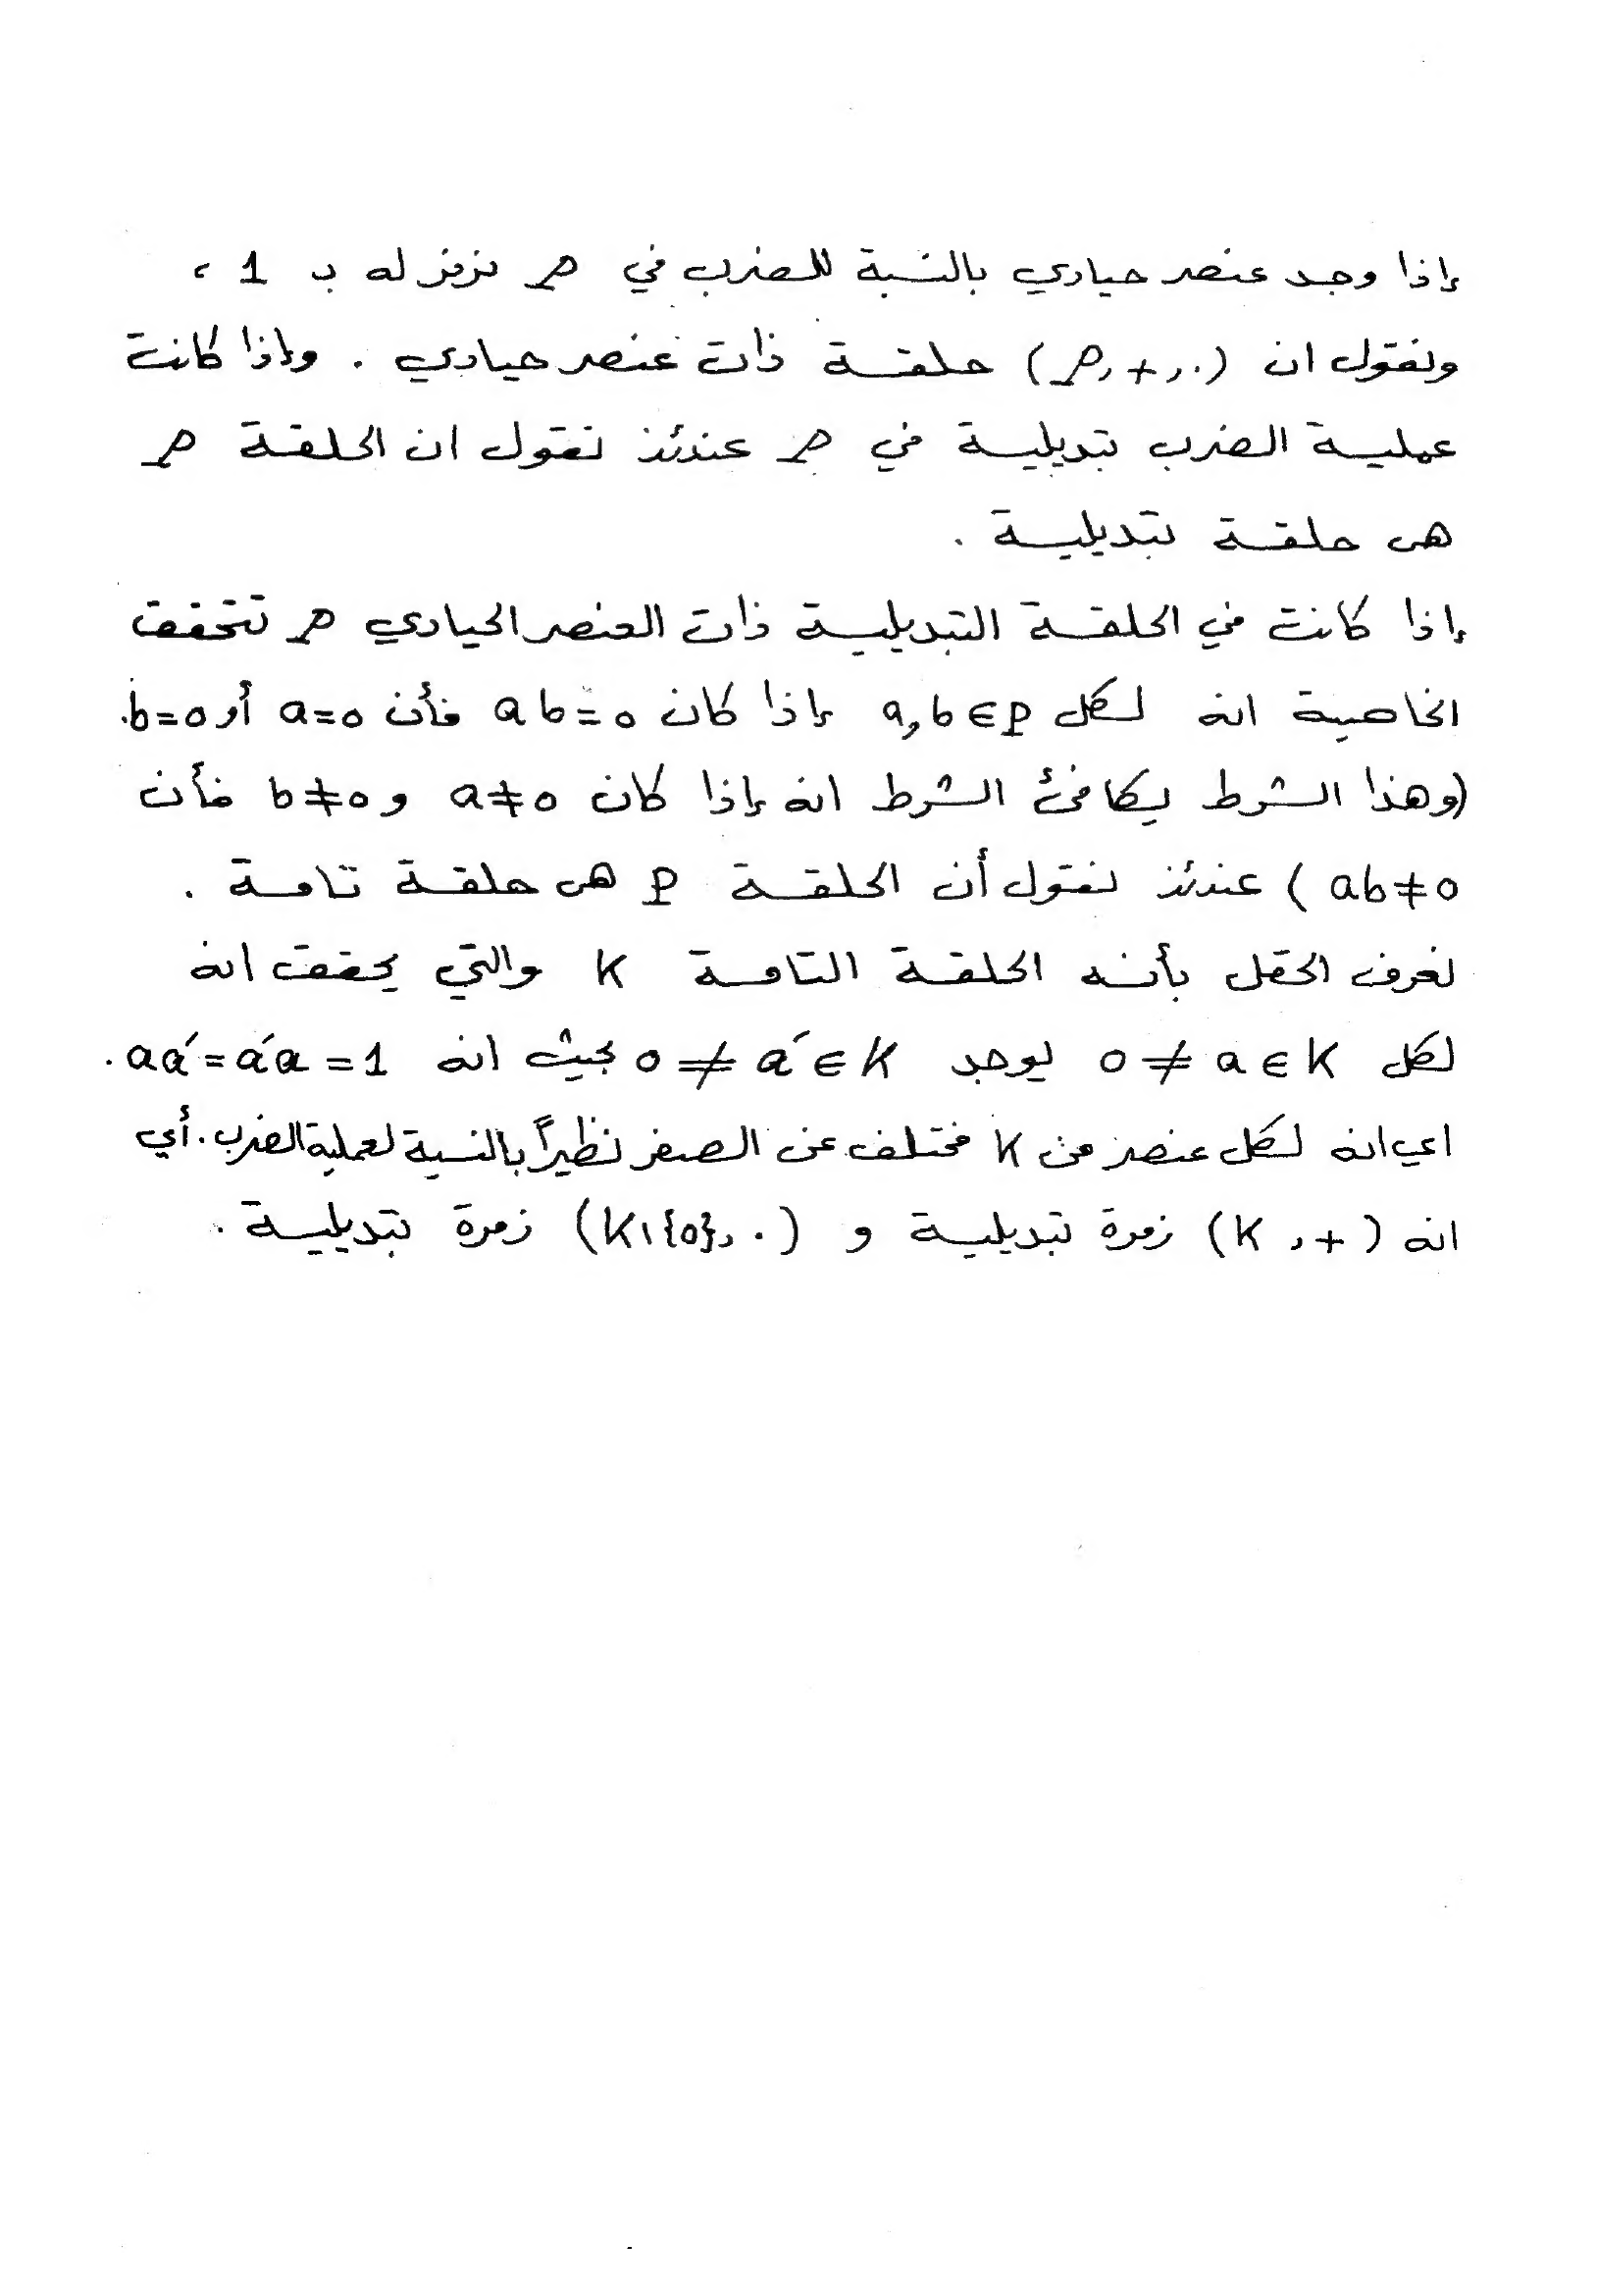 إذا وجد عنصر حيادي بالنسبة للضرب في P نرمز له بـ 1 ،
ونقول ان (P,+,.) حلقة ذات عنصر حيادي . وإذا كانت
عملية الضرب تبديلية في P عندئذ نقول ان الحلقة P
هي حلقة تبديلية .
إذا كانت في الحلقة التبديلية ذات العنصر الحيادي P تتحقق
الخاصية انه لكل a,b∈P إذا كان ab=0 فأن a=0 أو b=0.
(وهذا الشرط يكافئ الشرط انه إذا كان a≠0 و b≠0 فأن
ab≠0 ) عندئذ نقول أن الحلقة P هي حلقة تامة .
نعرف الحقل بأنه الحلقة التامة K والتي يحقق انه
لكل 0≠a∈K يوجد 0≠a´∈K بحيث انه aa´=a´a=1 .
اي انه لكل عنصر من K مختلف عن الصفر نظيراً بالنسبة لعملية الضرب. أي
انه (K,+) زمرة تبديلية و (K\{0},.) زمرة تبديلية .